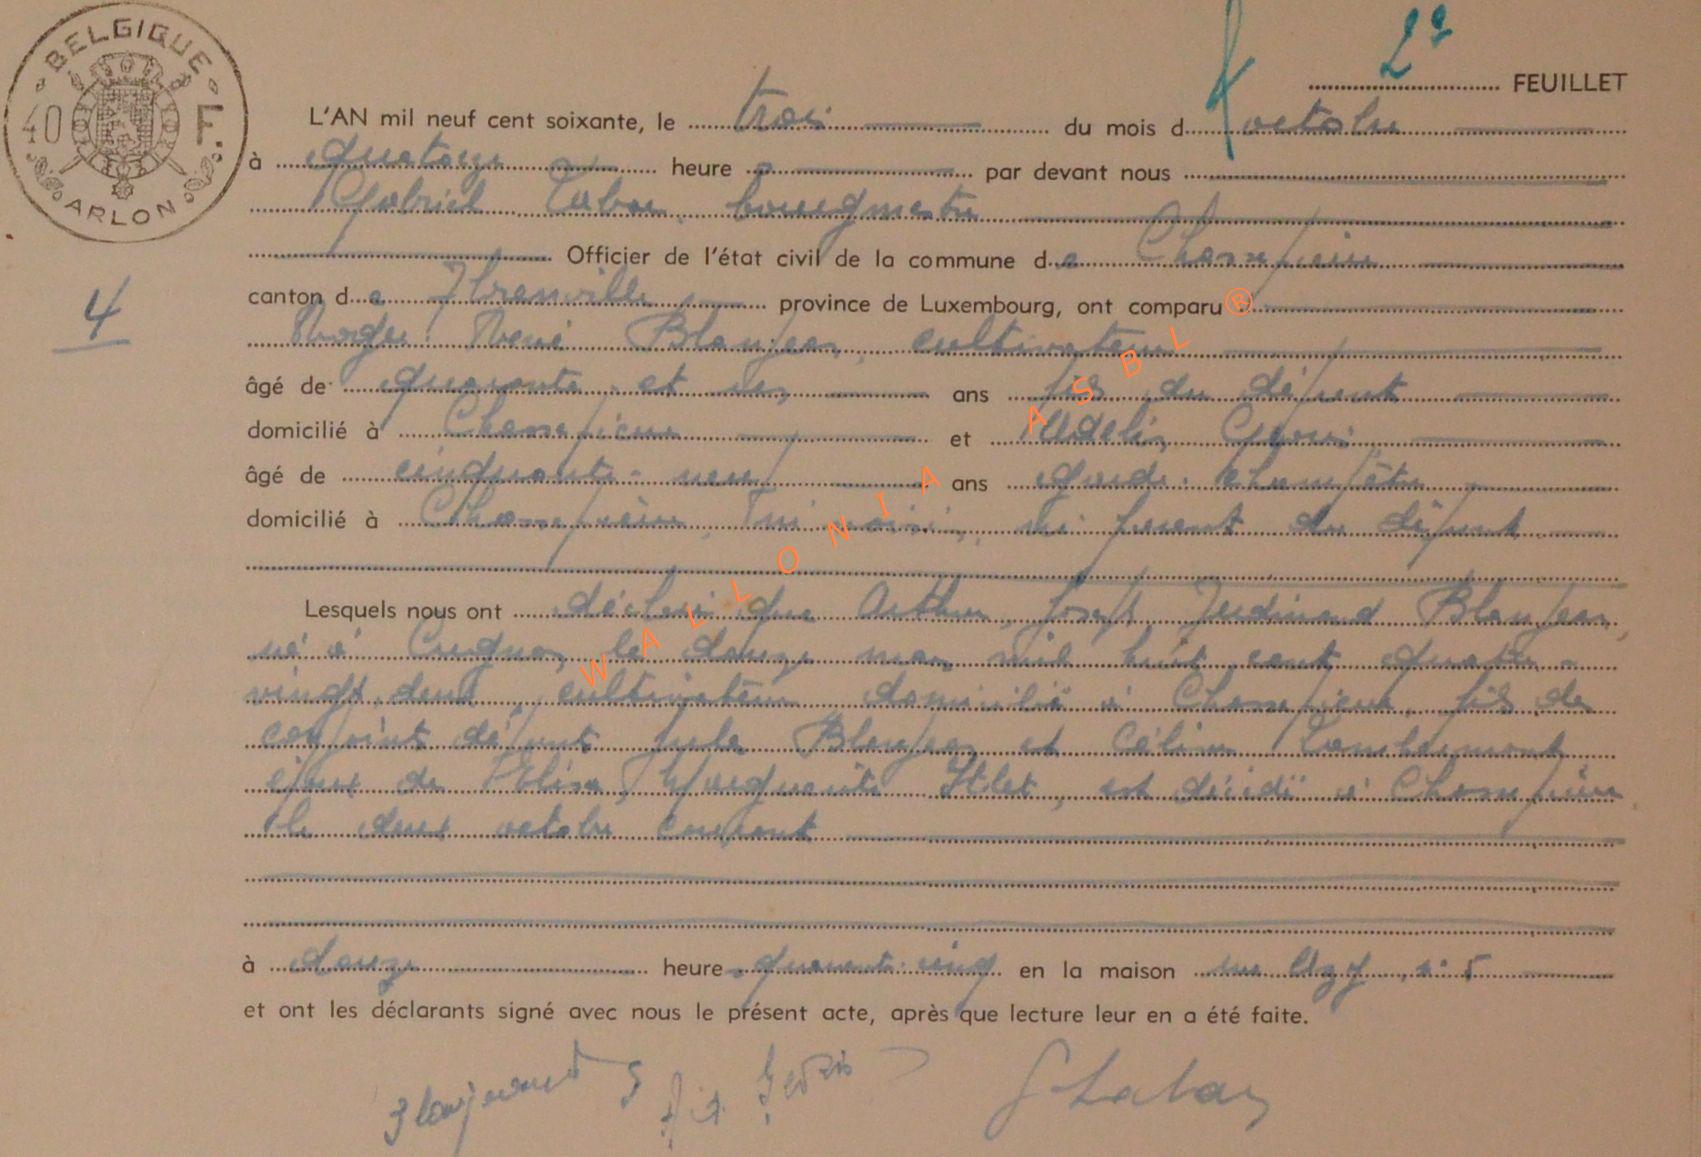 BELGIQUE
40 F.
ARLON
2e FEUILLET
L'AN mil neuf cent soixante, le trois du mois d octobre
à quatorze heure s par devant nous
Gabriel Laban, bourgmestre
Officier de l'état civil de la commune de
canton de province de Luxembourg, ont comparu ®
Roger René Blaujean, cultivateur
âgé de quarante et un ans fils du défunt
domicilié à et Adelin
âgé de cinquante-neuf ans garde-champêtre
domicilié à , non parent du défunt
Lesquels nous ont déclaré que Arthur Joseph Ferdinand Blaujean,
né à Cugnon le douze mars mil huit cent quatre-
vingt-deux, cultivateur domicilié à , fils de
conjoints défunts Jules Blaujean et Céline Lambermont
époux de Elisa Marguerite , est décédé à
le deux octobre courant
à douze heures quarante-cinq en la maison rue , n° 5
et ont les déclarants signé avec nous le présent acte, après que lecture leur en a été faite.
GLaban
4
WALLONIA ASBL